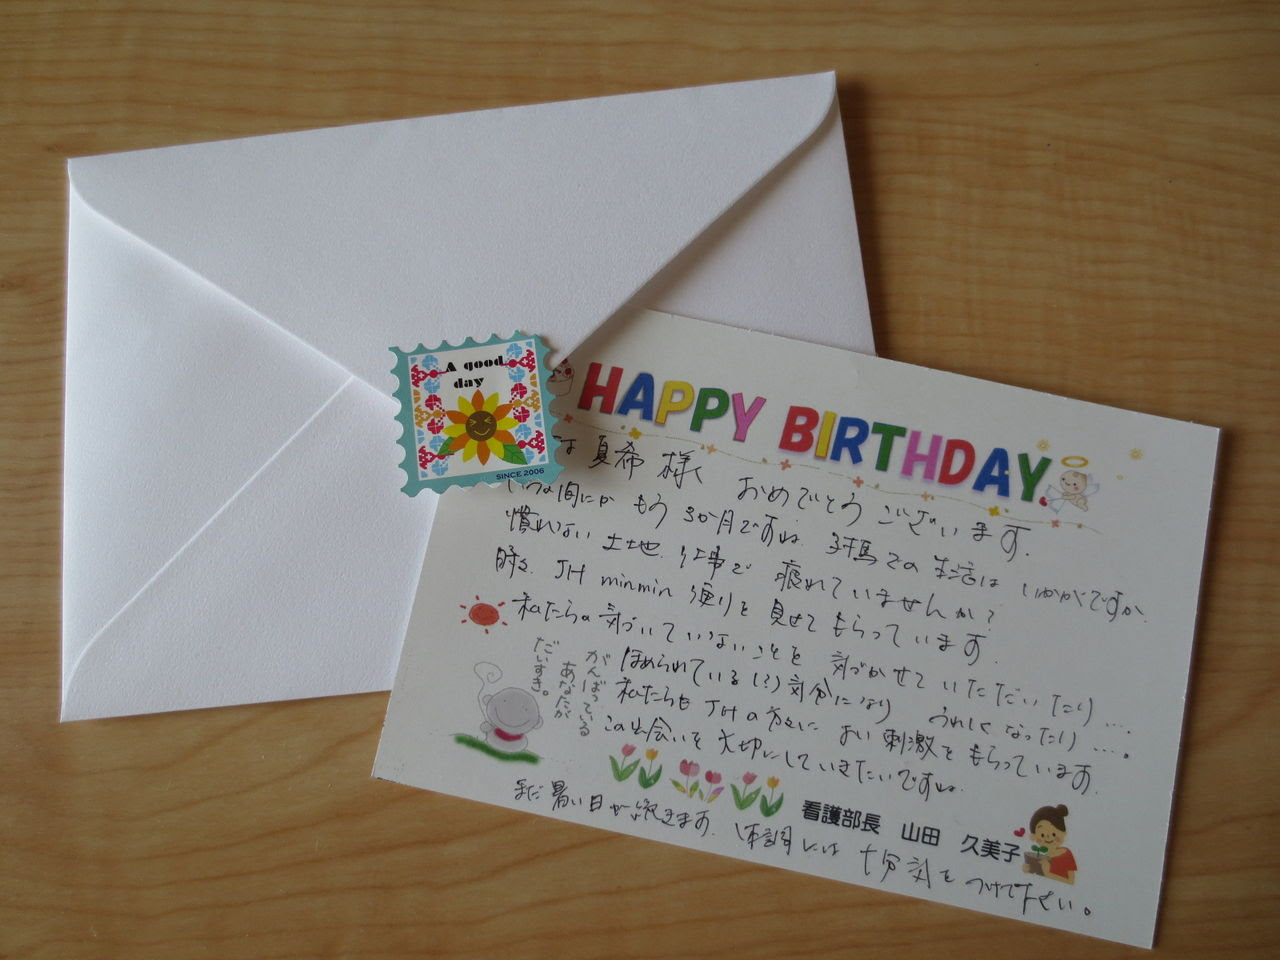 A good
day
SINCE 2006
HAPPY BIRTHDAY
夏希 様 おめでとうございます。
いつの間にか もう 3か月ですね。対馬での生活は いかがですか。
慣れない土地、仕事で 疲れていませんか？
時々、JH minmin 便りを 見せてもらっています。
私たちの 気づいていないことを 気づかせていただいたり…
ほめられている(？)気分になり うれしくなったり…。
私たちも JHの方々に よい刺激をもらっています。
この出会いを 大切にしていきたいですね。
がんばっている
あなたが
だいすき。
看護部長 山田 久美子
まだ暑い日が続きます。体調には 十分気をつけて下さい。